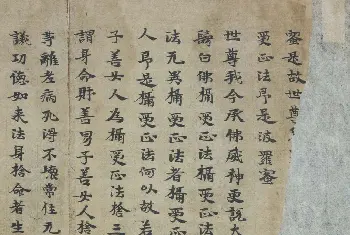 蜜是故世尊
受正法即是波羅蜜
世尊我今承佛威神更說大
鬘白佛攝受正法攝受正法
法无異攝受正法者攝受正
人即是攝受正法何以故若
子善女人為攝受正法捨三
謂身命財善男子善女人捨
等離老病死得不壞常住无
議功德如來法身捨命者生